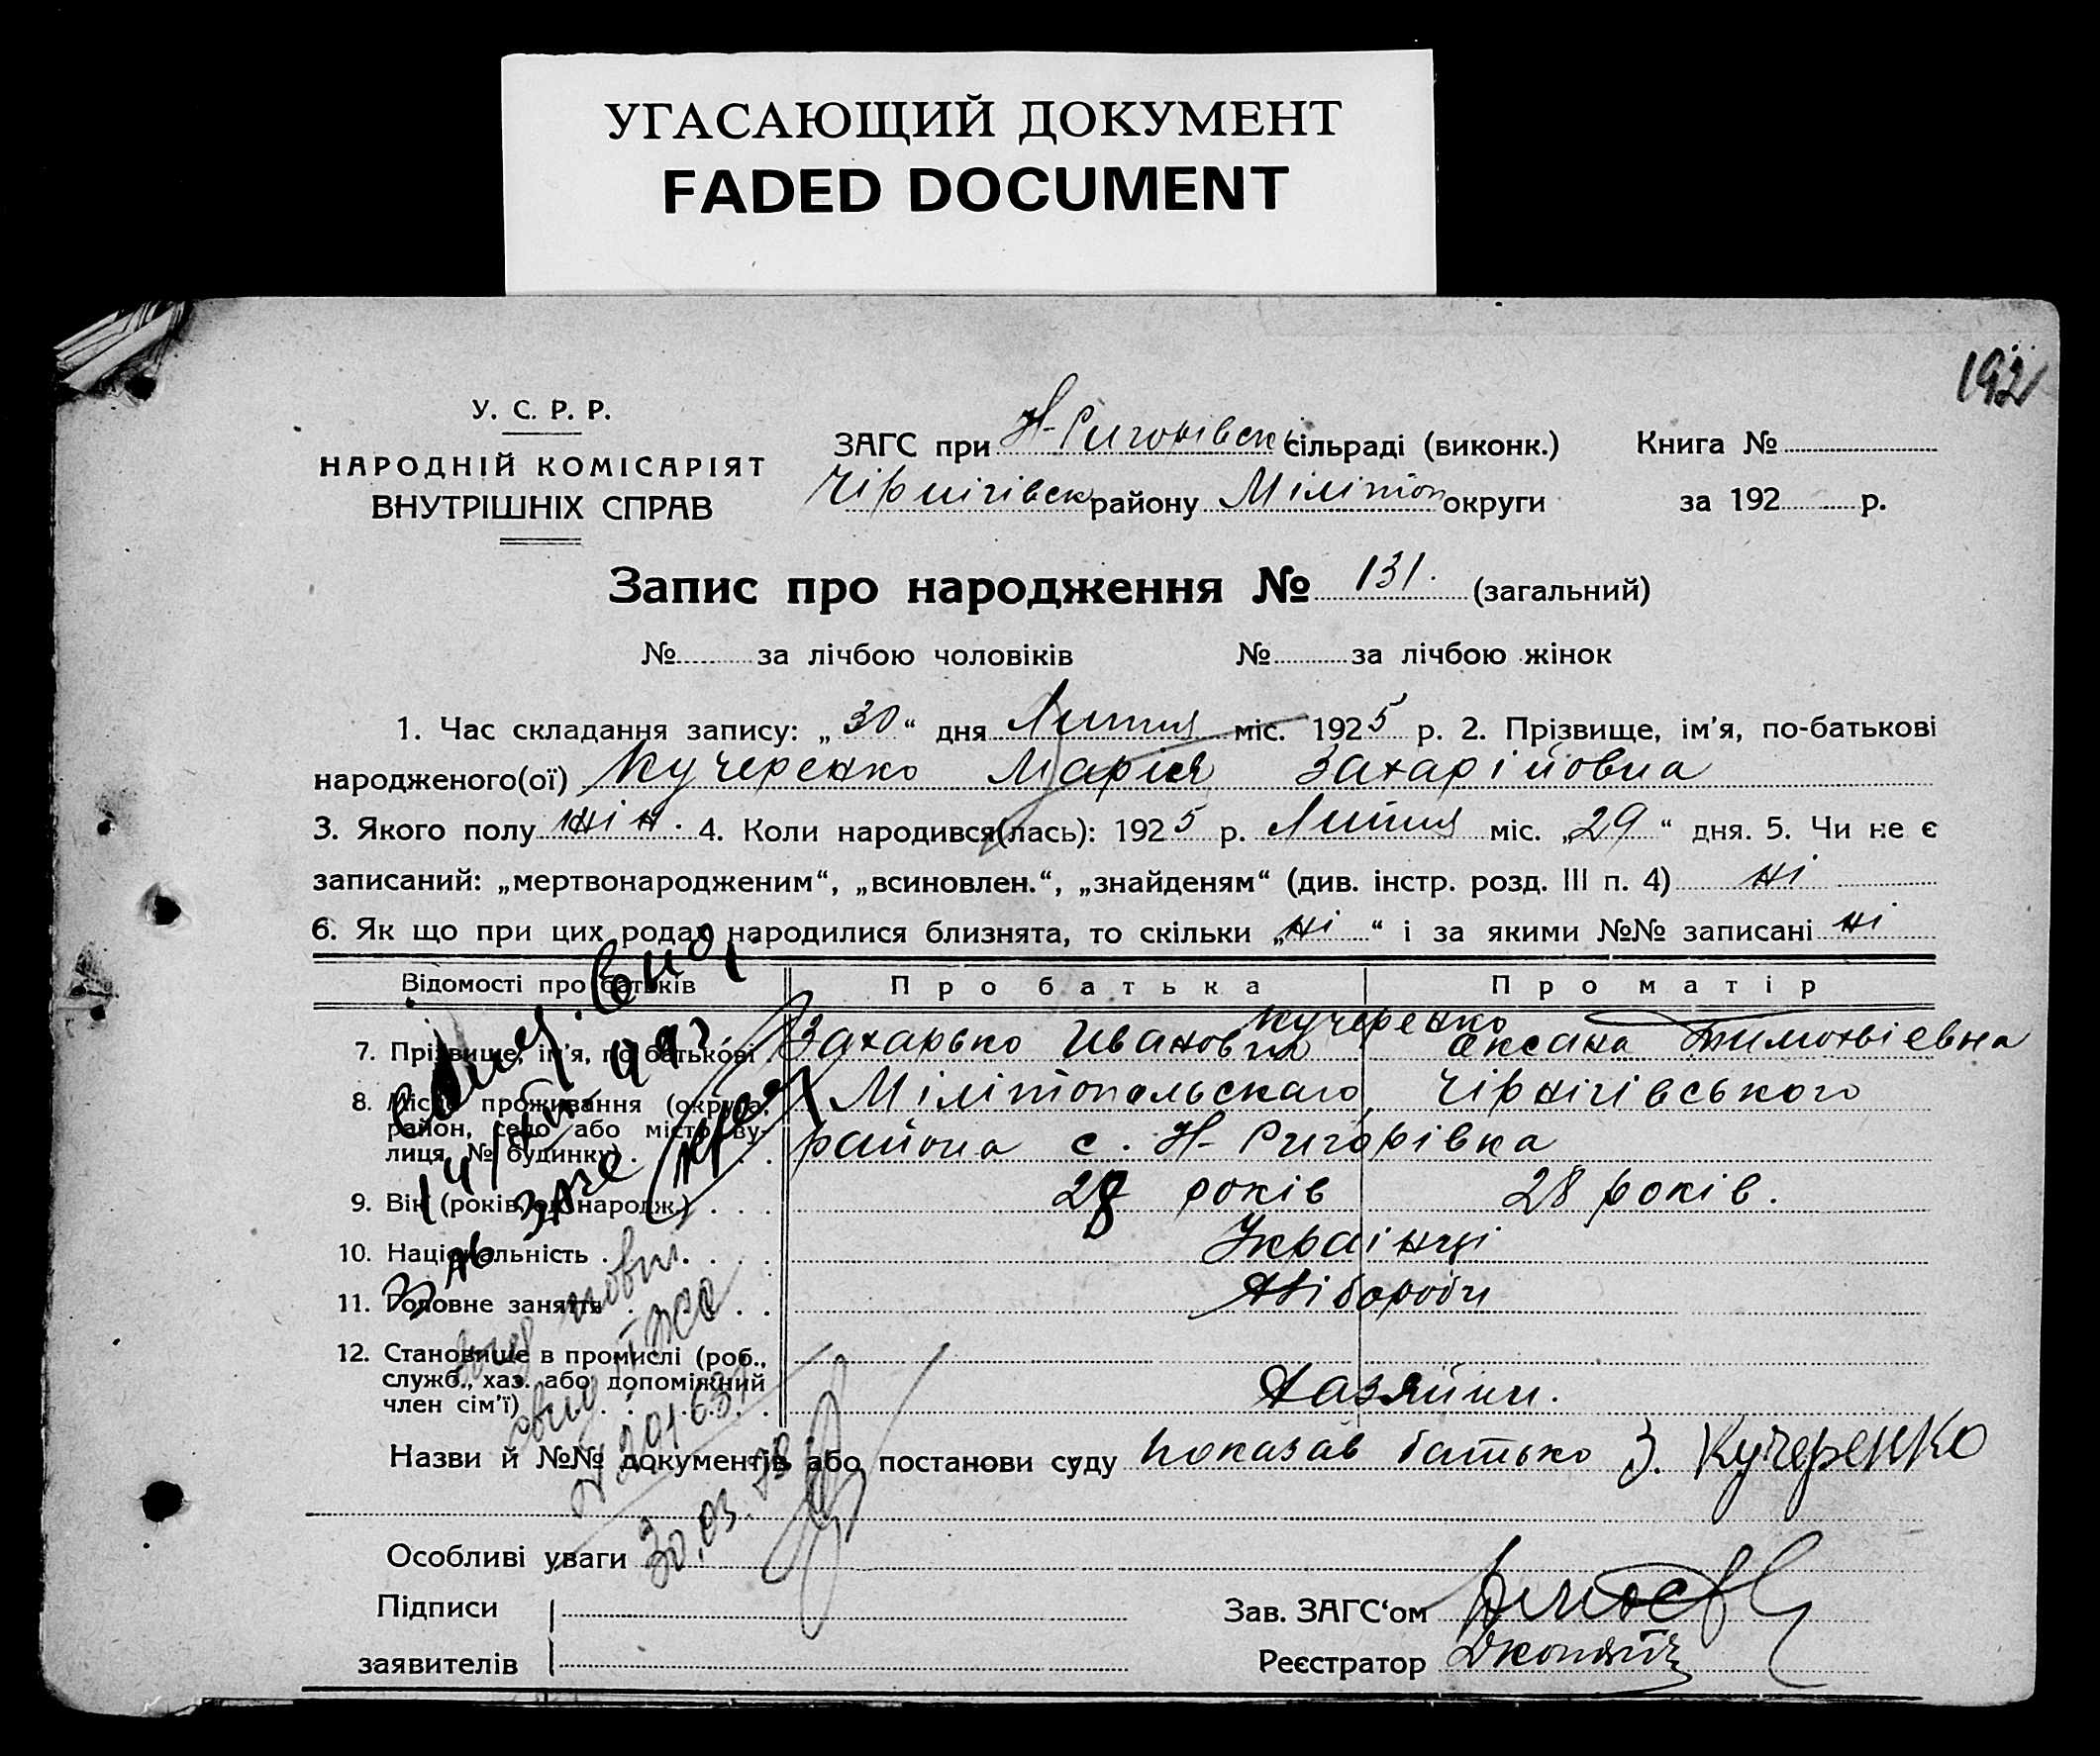 УГАСАЮЩИЙ ДОКУМЕНТ
FADED DOCUMENT
192
У. С. Р. Р.
НАРОДНІЙ КОМІСАРІЯТ
ВНУТРІШНІХ СПРАВ
ЗАГС при Н-Григорівськ сільраді (виконк.)
Чірнігівск району Мілітоп округи
Книга №
за 192 р.
Запис про народження № 131. (загальний)
№ за лічбою чоловіків № за лічбою жінок
1. Час складання запису: „30“ дня Липня міс. 1925 р. 2. Прізвище, ім'я, по-батькові
народженого(ої) Кучеренко Мария Захарійовна
3. Якого полу жін. 4. Коли народився(лась): 1925 р. Липня міс. „29“ дня. 5. Чи не є
записаний: „мертвонародженим“, „всиновлен.“, „знайденям“ (див. інстр. розд. III п. 4) ні
6. Як що при цих родах народилися близнята, то скільки „ні“ і за якими №№ записані ні
Відомості про батьків Про батька Про матір
Кучеренко
7. Прізвище, ім'я, по батькові Захарько Иванович Аксана Тимохвіевна
8. Місце проживання (округа, район, село або місто, вулиця, № будинку) Міліпопольскаго Чірнігівського
района с. Н-Григорівка
9. Вік (років, од народж.) 28 років 28 років.
10. Національність Украінці
11. Головне заняття Хлібороби
12. Становище в промислі (роб.,
служб., хаз. або допоміжний
член сім'ї) Хазяйни.
Назви й №№ документів або постанови суду показав батько З. Кучеренко
30.03.
Особливі уваги
Підписи
заявителів
Зав. ЗАГС‘ом
Реєстратор